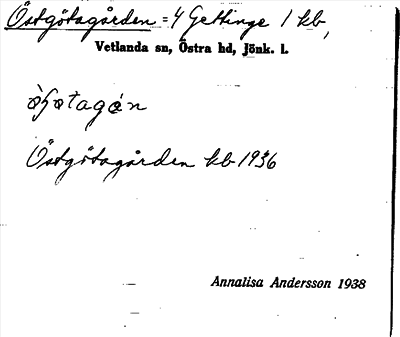 Östgötagården = 4 Gettinge 1 kb,
Vetlanda sn, Östra hd, Jönk. l.
Östgötagården kb 1936
Annalisa Andersson 1938